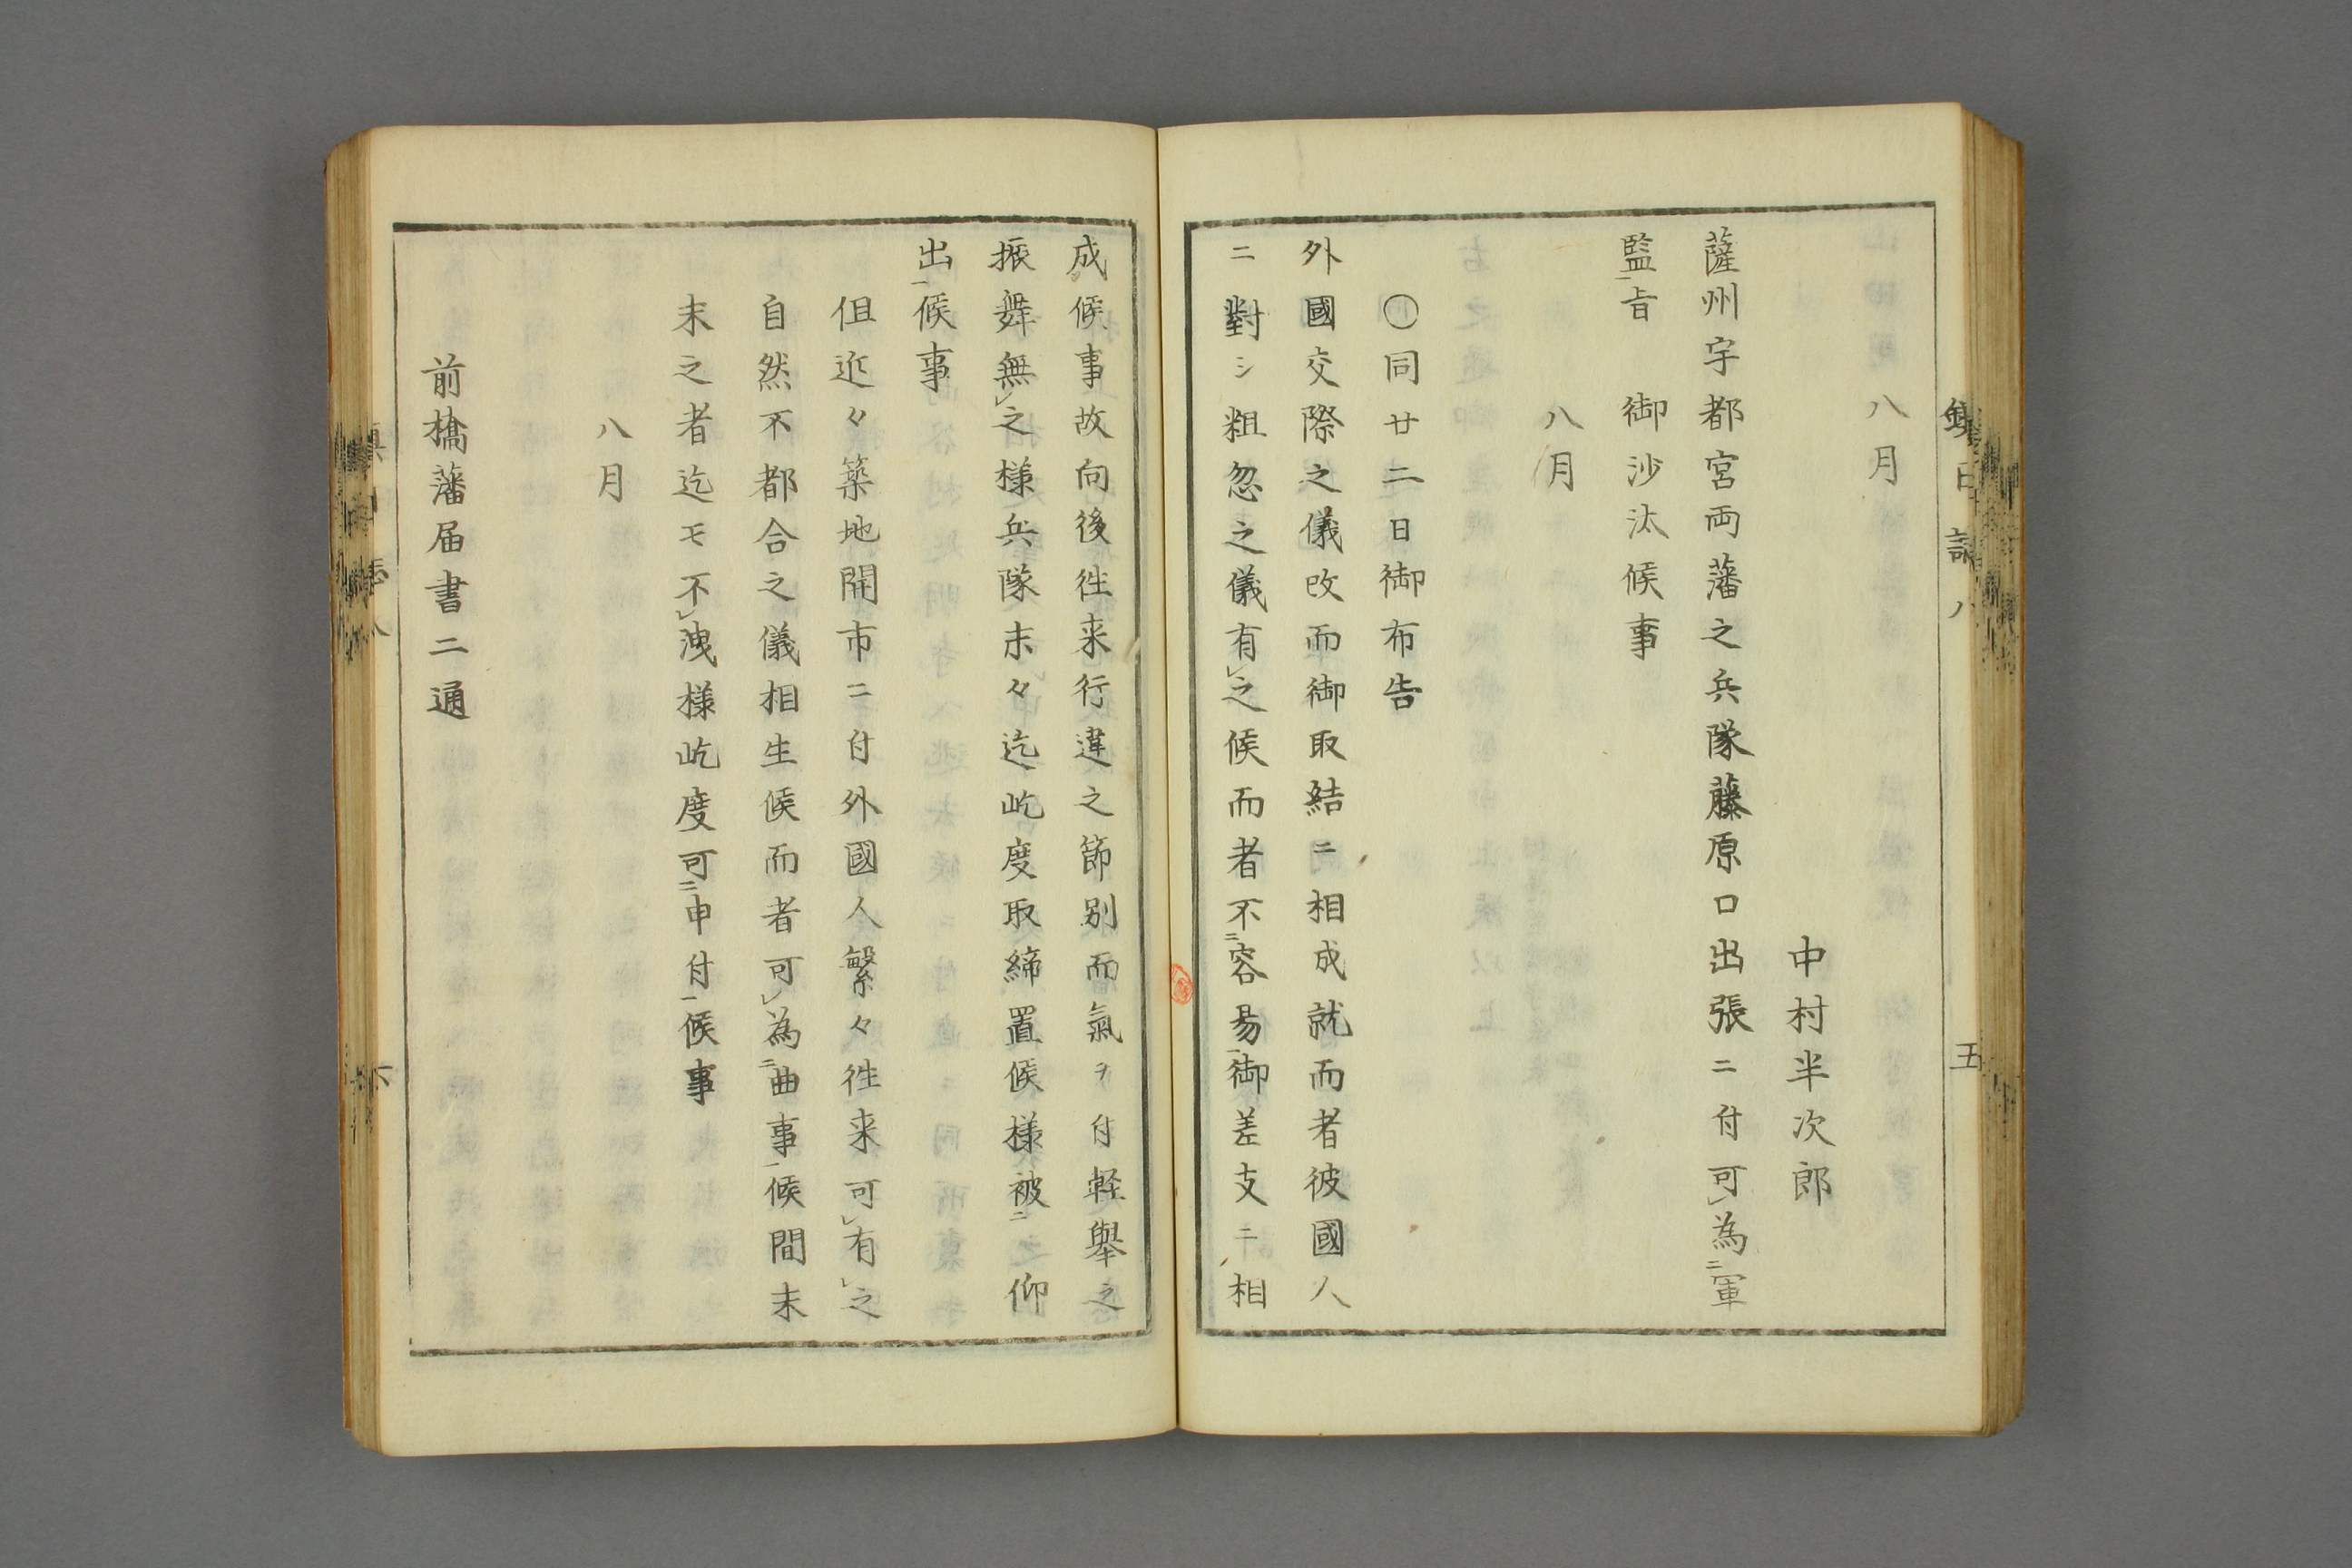 八月
中村半次郎
薩州宇都宮両藩之兵隊藤原口出張ニ付可㆑為㆓軍
監㆒旨　御沙汰候事
八月
〇同廿二日御布告
外國交際之儀改而御取結ニ相成就而者彼國人
ニ對シ粗忽之儀有㆑之候而者不㆓容易㆒御差支ニ相
成候事故向後徃来行違之節別而氣ヲ付軽舉之
振舞無㆑之様兵隊末々迄屹度取締置候様被㆓　仰
出㆒候事
但近々築地開市ニ付外國人繁々徃来可㆑有㆑之
自然不都合之儀相生候而者可㆑為㆓曲事㆒候間末
末之者迄モ不㆑洩様屹度可㆓申付㆒候事
八月
前橋藩届書二通